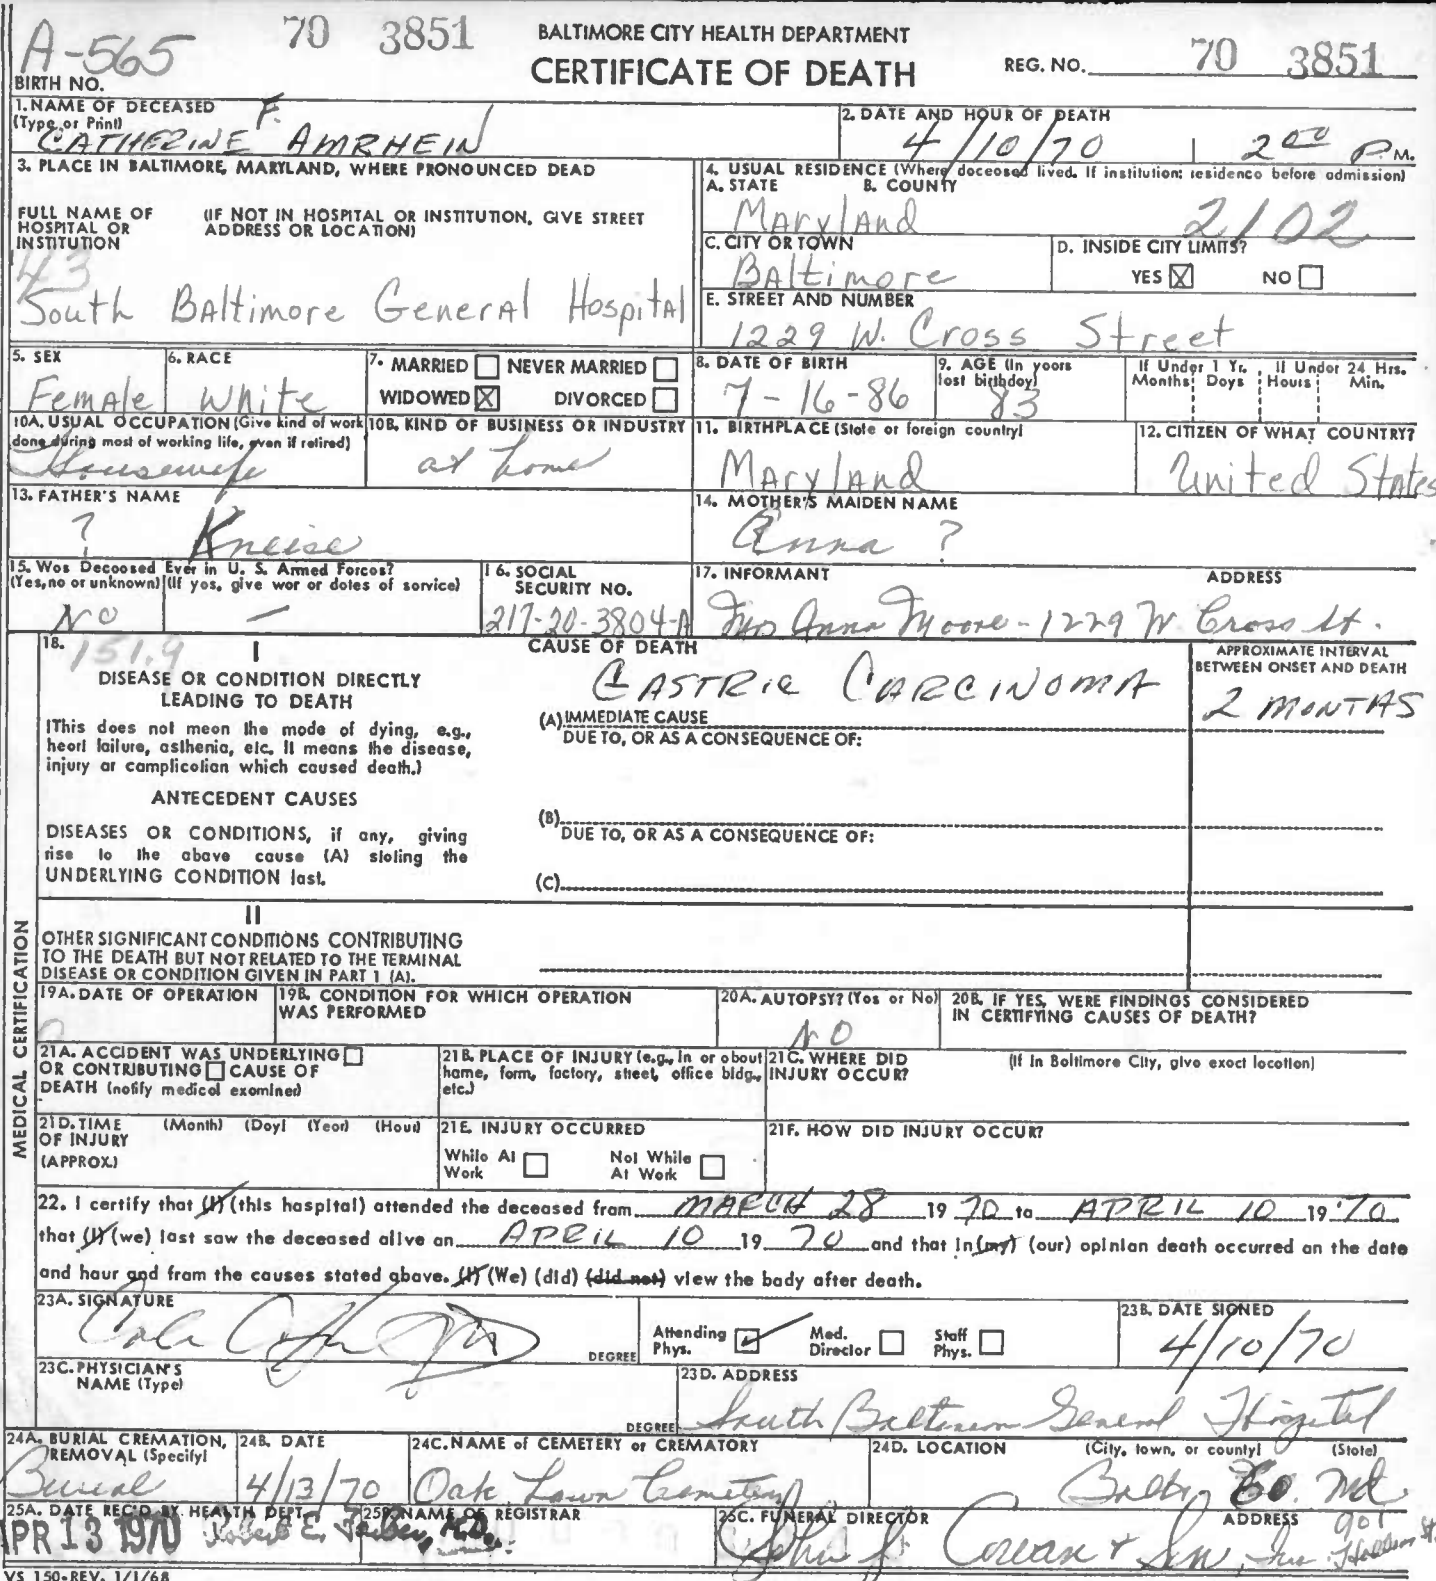 A-565 70 3851 BALTIMORE CITY HEALTH DEPARTMENT REG. NO. 70 3851
BIRTH NO. CERTIFICATE OF DEATH
1. NAME OF DECEASED (Type or Print) CATHERINE F. AMRHEIN
2. DATE AND HOUR OF DEATH 4/10/70 2 00 P.M.
3. PLACE IN BALTIMORE, MARYLAND, WHERE PRONOUNCED DEAD
FULL NAME OF HOSPITAL OR INSTITUTION (IF NOT IN HOSPITAL OR INSTITUTION, GIVE STREET ADDRESS OR LOCATION)
43
South Baltimore General Hospital
4. USUAL RESIDENCE (Where deceased lived. If institution: residence before admission)
A. STATE B. COUNTY
Maryland 2102
C. CITY OR TOWN Baltimore
D. INSIDE CITY LIMITS? YES ☒ NO ☐
E. STREET AND NUMBER
1229 W. Cross Street
5. SEX Female
6. RACE White
7. MARRIED ☐ NEVER MARRIED ☐
WIDOWED ☒ DIVORCED ☐
8. DATE OF BIRTH 7-16-86
9. AGE (In years last birthday) 83
If Under 1 Yr. Months Days If Under 24 Hrs. Hours Min.
10A. USUAL OCCUPATION (Give kind of work done during most of working life, even if retired) Housewife
10B. KIND OF BUSINESS OR INDUSTRY at home
11. BIRTHPLACE (State or foreign country) Maryland
12. CITIZEN OF WHAT COUNTRY? United States
13. FATHER'S NAME ? Kneise
14. MOTHER'S MAIDEN NAME Anna ?
15. Was Deceased Ever in U. S. Armed Forces? (Yes, no or unknown) (If yes, give war or dates of service) NO —
16. SOCIAL SECURITY NO. 217-20-3804-A
17. INFORMANT ADDRESS
Mrs Anna Moore - 1229 W. Cross St.
MEDICAL CERTIFICATION
18. 151.9 I
DISEASE OR CONDITION DIRECTLY LEADING TO DEATH
(This does not mean the mode of dying, e.g., heart failure, asthenia, etc. It means the disease, injury or complication which caused death.)
ANTECEDENT CAUSES
DISEASES OR CONDITIONS, if any, giving rise to the above cause (A) stating the UNDERLYING CONDITION last.
CAUSE OF DEATH
GASTRIC CARCINOMA
(A) IMMEDIATE CAUSE
DUE TO, OR AS A CONSEQUENCE OF:
(B)
DUE TO, OR AS A CONSEQUENCE OF:
(C)
APPROXIMATE INTERVAL BETWEEN ONSET AND DEATH
2 MONTHS
II
OTHER SIGNIFICANT CONDITIONS CONTRIBUTING TO THE DEATH BUT NOT RELATED TO THE TERMINAL DISEASE OR CONDITION GIVEN IN PART 1 (A).
19A. DATE OF OPERATION
19B. CONDITION FOR WHICH OPERATION WAS PERFORMED
20A. AUTOPSY? (Yes or No) NO
20B. IF YES, WERE FINDINGS CONSIDERED IN CERTIFYING CAUSES OF DEATH?
21A. ACCIDENT WAS UNDERLYING ☐ OR CONTRIBUTING ☐ CAUSE OF DEATH (notify medical examiner)
21B. PLACE OF INJURY (e.g., in or about home, farm, factory, street, office bldg., etc.)
21C. WHERE DID INJURY OCCUR? (If in Baltimore City, give exact location)
21D. TIME OF INJURY (APPROX.) (Month) (Day) (Year) (Hour)
21E. INJURY OCCURRED
While At Work ☐ Not While At Work ☐
21F. HOW DID INJURY OCCUR?
22. I certify that (I) (this hospital) attended the deceased from MARCH 28 19 70 to APRIL 10 19 70
that (I) (we) last saw the deceased alive on APRIL 10 19 70 and that in (my) (our) opinion death occurred on the date
and hour and from the causes stated above. (I) (We) (did) (did not) view the body after death.
23A. SIGNATURE DEGREE
Attending Phys. ☑ Med. Director ☐ Staff Phys. ☐
23B. DATE SIGNED 4/10/70
23C. PHYSICIAN'S NAME (Type) DEGREE
23D. ADDRESS South Baltimore General Hospital
24A. BURIAL CREMATION, REMOVAL (Specify) Burial
24B. DATE 4/13/70
24C. NAME of CEMETERY or CREMATORY Oak Lawn Cemetery
24D. LOCATION (City, town, or county) (State) Balto. Co. Md.
25A. DATE REC'D BY HEALTH DEPT. APR 13 1970
25B. NAME OF REGISTRAR Robert E. Farber, M.D.
25C. FUNERAL DIRECTOR ADDRESS
John J. & Son, Inc. 901 Hollins St.
VS 150-REV. 1/1/68